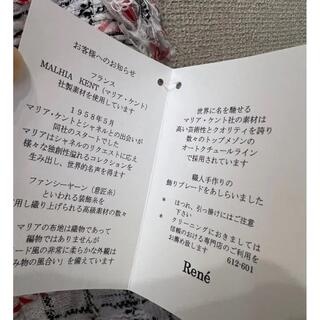 お客様へのお知らせ
フランス
MALHIA KENT (マリア・ケント)
社製素材を使用しています
1958年5月
マリア・ケントとシャネルとの出会いが
同社のスタートでした
マリアはシャネルのリクエストに応え
様々な独創性溢れるコレクションを
生み出し、世界的名声を得ます
ファンシーヤーン（意匠糸）
といわれる装飾糸を
用し織り上げられる高級素材の数々
マリアの布地は織物であって
編物ではありませんが
ード風の非常に柔らかな外観は
み物の風合い」を備えています
世界に名を馳せる
マリア・ケント社の素材は
高い芸術性とクオリティを誇り
数々のトップメゾンの
オートクチュールライン
で採用されています
職人手作りの
飾りブレードをあしらいました
* ほつれ、引っ掛けにはご注意
下さい
* クリーニングにおきましては
信頼のおける専門店のご利用を
お薦め致します
612-601
René